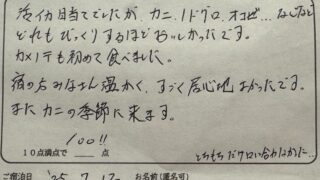 活イカ目当てでしたが、カニ、ノドグロ、オコゼ…などなど
どれもびっくりするほどおいしかったです。
カメノテも初めて食べました。
宿の方みなさん温かく、すごく居心地よかったです。
またカニの季節に来ます。
100!!
10点満点で 点
ご宿泊日 '25. 7. お名前(匿名可)